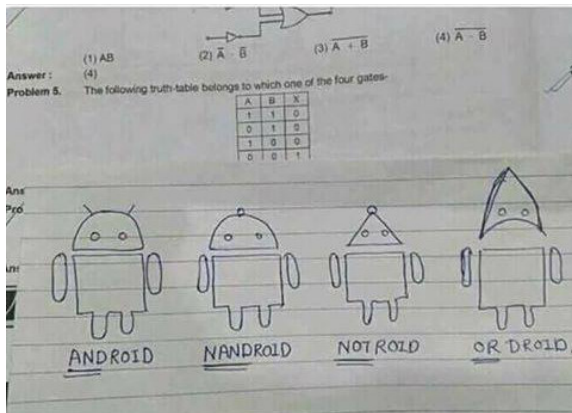 (1) AB (2) A̅ · B̅ (3) A̅ ̅+̅ ̅B̅ (4) A̅ ̅·̅ ̅B̅
Answer : (4)
Problem 5. The following truth-table belongs to which one of the four gates-
A B X
1 1 0
0 1 0
1 0 0
0 0 1
Ans
Pro
ANDROID NANDROID NOTROID OR DROID